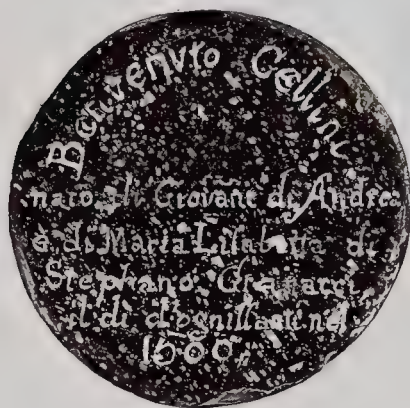 Benvenuto Cellini
nato di Giovañe di Andrea
e di Maria Lisabetta di
Stephano Granacci
il dì d'ognissanti nel
1500